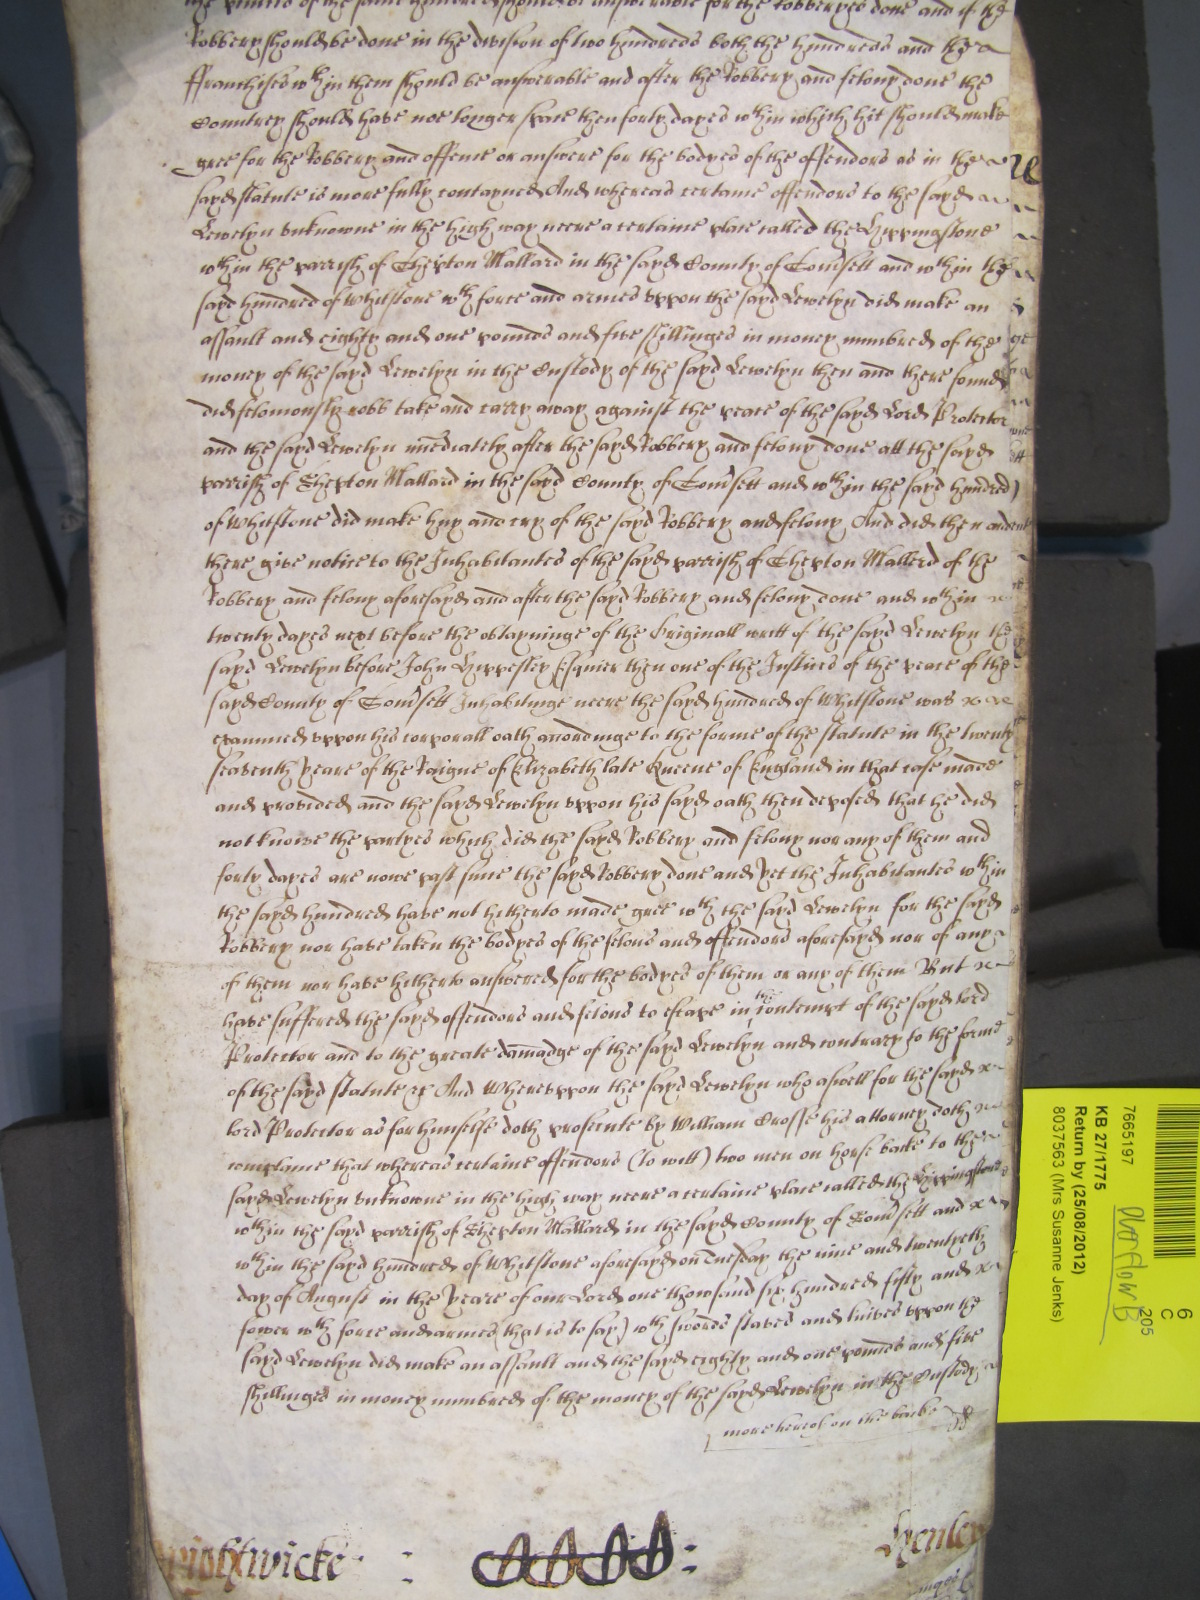 the same hundred should be answerable for the robberyes done and if the
Robbery should be done in the division of two hundreds both the hundreds and the
ffranchises wthin them should be answerable and after the Robbery and felony done the
Countrey should have noe longer space then forty dayes wthin which hit should make
gree for the Robbery and offence or answere for the bodyes of the offendors as in the
sayd statute is more fully contayned And whereas certaine offendors to the sayd
Lewelyn unknowne in the high way neere a certaine place called the
wthin the parrish of Shepton Mallard in the sayd County of Som'sett and wthin the
sayd hundred of Whitstone wth force and armes uppon the sayd Lewelyn did make an
assault and eighty and one pounds and five shillinges in money numbred of the
money of the sayd Lewelyn in the Custody of the sayd Lewelyn then and there found
did feloniously robb take and carry away against the peace of the sayd Lord Protector
and the sayd Lewelyn imediately after the sayd Robbery and felony done att the sayd
parrish of Shepton Mallard in the sayd County of Som'sett and wthin the sayd hundred
of Whitstone did make huy and cry of the sayd Robbery and felony And did then and
there give notice to the Inhabitantes of the sayd parrish of Shepton Mallerd of the
Robbery and felony aforesayd and after the sayd Robbery and felony done and wthin
twenty dayes next before the obtayninge of the Originall writt of the sayd Lewelyn the
sayd Lewelyn before John Hippesley Esquier then one of the Justices of the peace of the
sayd County of Som'sett Inhabitinge neere the sayd hundred of Whitstone was
examined uppon his corporall oath accordinge to the forme of the statute in the twenty
seaventh yeare of the Raigne of Elizabeth late Queene of England in that case made
and provided and the sayd Lewelyn uppon his sayd oath then deposed that he did
not knowe the partyes which did the sayd Robbery and felony nor any of them and
forty dayes are nowe past since the sayd Robbery done and yet the Inhabitantes wthin
the sayd hundred have not hitherto made gree wth the sayd Lewelyn for the sayd
Robbery nor have taken the bodyes of the felons and offendors aforesayd nor of any
of them nor have hitherto answered for the bodyes of them or any of them But
have suffered the sayd offendors and felons to escape in the contempt of the sayd lord
Protector and to the greate damadge of the sayd Lewelyn and contrary to the forme
of the said statute &c And Whereuppon the sayd Lewelyn who aswell for the sayd
lord Protector as for himselfe doth prosecute by William Crosse his attorney doth
complaine that whereas certaine offendors (to witt) two men on horse backe to the
sayd Lewelyn unknowne in the high way neere a certaine place called the
wthin the sayd parrish of Shepton Mallard in the sayd County of Som'sett and
wthin the sayd hundred of Whitstone aforesayd on Tuesday the nine and twentyeth
day of August in the yeare of our Lord one thowsand six hundred fifty and
fower wth force and armes (that is to say) wth swords staves and knives uppon the
sayd Lewelyn did make an assault and the sayd eighty and one pounds and five
shillinges in money numbred of the money of the sayd Lewelyn in the Custody
more hereof on the backe
wightwicke
Henley
7665197
KB 27/1775
Return by (25/08/2012)
8037563 (Mrs Susanne Jenks)
6
C
205